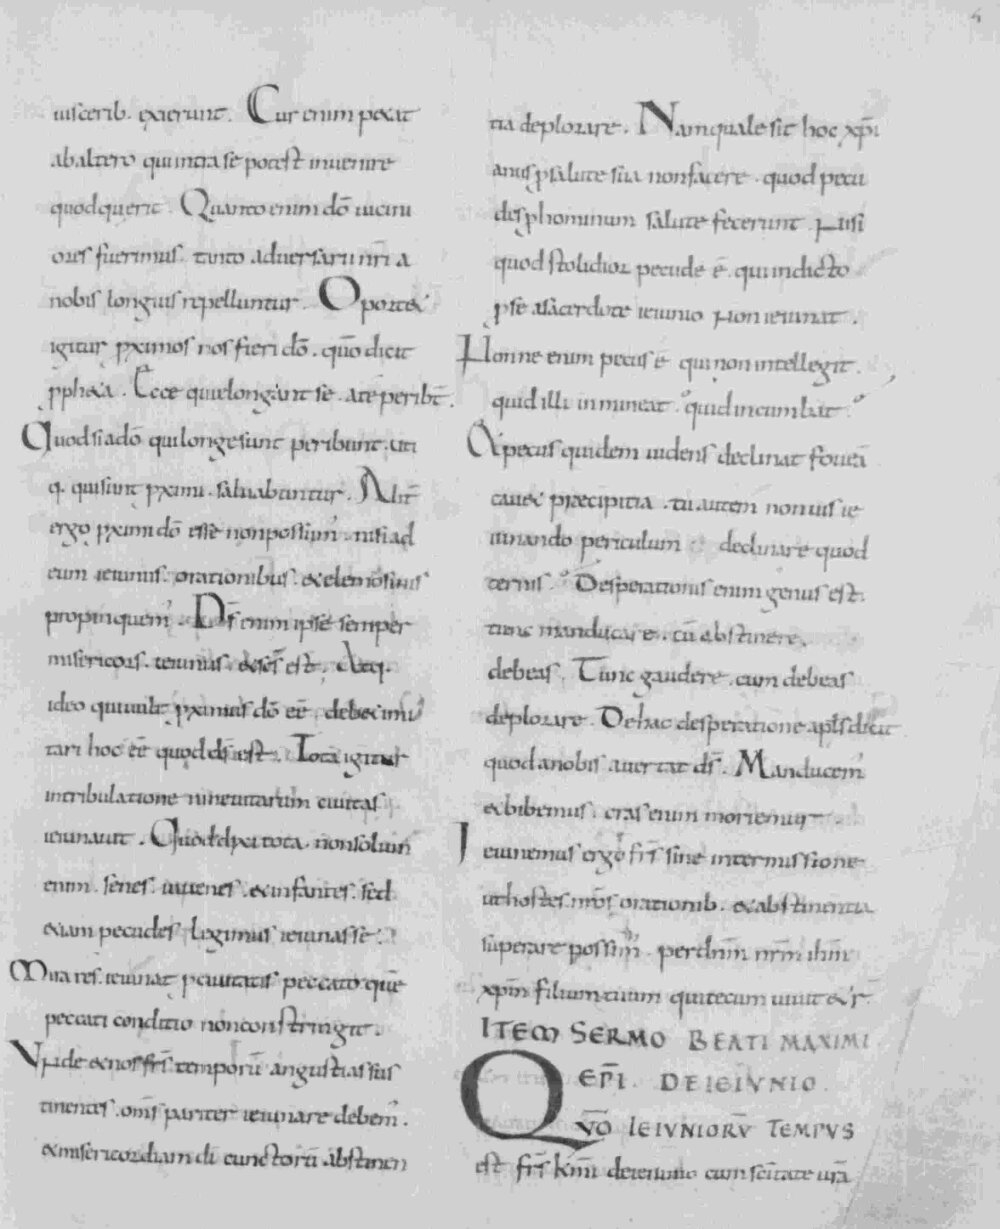 uiscerib. exierunt. Cur enim pexat
ab altero qui intra se potest inuenire
quod querit. Quanto enim dō uicini
ores fuerimus. tanto aduersarii nr̄i a
nobis longius repelluntur. Oportet
igitur pximos nos fieri dō. quō dicit
ppheta. Ecce qui elongant se. a te peribt̄.
Quod si a dō qui longe sunt peribunt. uti
q. qui sunt pximi. saluabuntur. Alit̄
ergo pximi dō esse non possum̄. nisi ad
eum ieiuniis. orationibus. et elemosinis
propinquem̄. Ds̄ enim ipse semper
misericors. ieiunus. et scs̄ est. Atq.
ideo qui uult pximus dō eē. debet imi
tari hoc eē quod ds̄ est. Tota igitur
in tribulatione nineuitarum ciuitas
ieiunauit. Quod dixi tota. non solum
enim. senes. iuuenes. et infantes. sed
etiam pecudes legimus ieiunasse.
Mira res. ieiunat p ciuitatis peccato quē
peccati conditio non constringit.
Unde et nos frs̄ temporū angustias sus
tinentes. om̄s pariter ieiunare debem̄.
et misericordiam dī cunctorū abstinen
tia deplorare. Nam quale sit hoc xp̄i
anus p salute sua non facere. quod pecu
des p hominum salute fecerunt. Nisi
quod stolidior pecude ē. qui indicto
p se a sacerdote ieiunio non ieiunat.
Nonne enim pecus ē qui non intellegit.
quid illi inmineat. quid incumbat.
At pecus quidem uidens declinat foueā
cauet præcipitia. tu autem non uis ie
iunando periculum declinare quod
cernis. Desperationis enim genus est.
tunc manducare. cū abstinere.
debeas. Tunc gaudere. cum debeas
deplorare. De hac desperatione apls̄ dicit
quod a nobis auertat ds̄. Manducem̄
et bibemus. cras enim moriemur
Ieiunemus ergo frs̄ sine intermissione
ut hostes nr̄os orationib. et abstinentia
superare possim̄. per dnm̄ nrm̄ ihm̄
xpm̄ filium tuum qui tecum uiuit et r̄
ITEM SERMO BEATI MAXIMI
EP̄I. DE IEIVNIO.
QVŌ IEIVNIORV̄ TEMPVS
est frs̄ km̄i de ieiunio cum scītate ur̄a